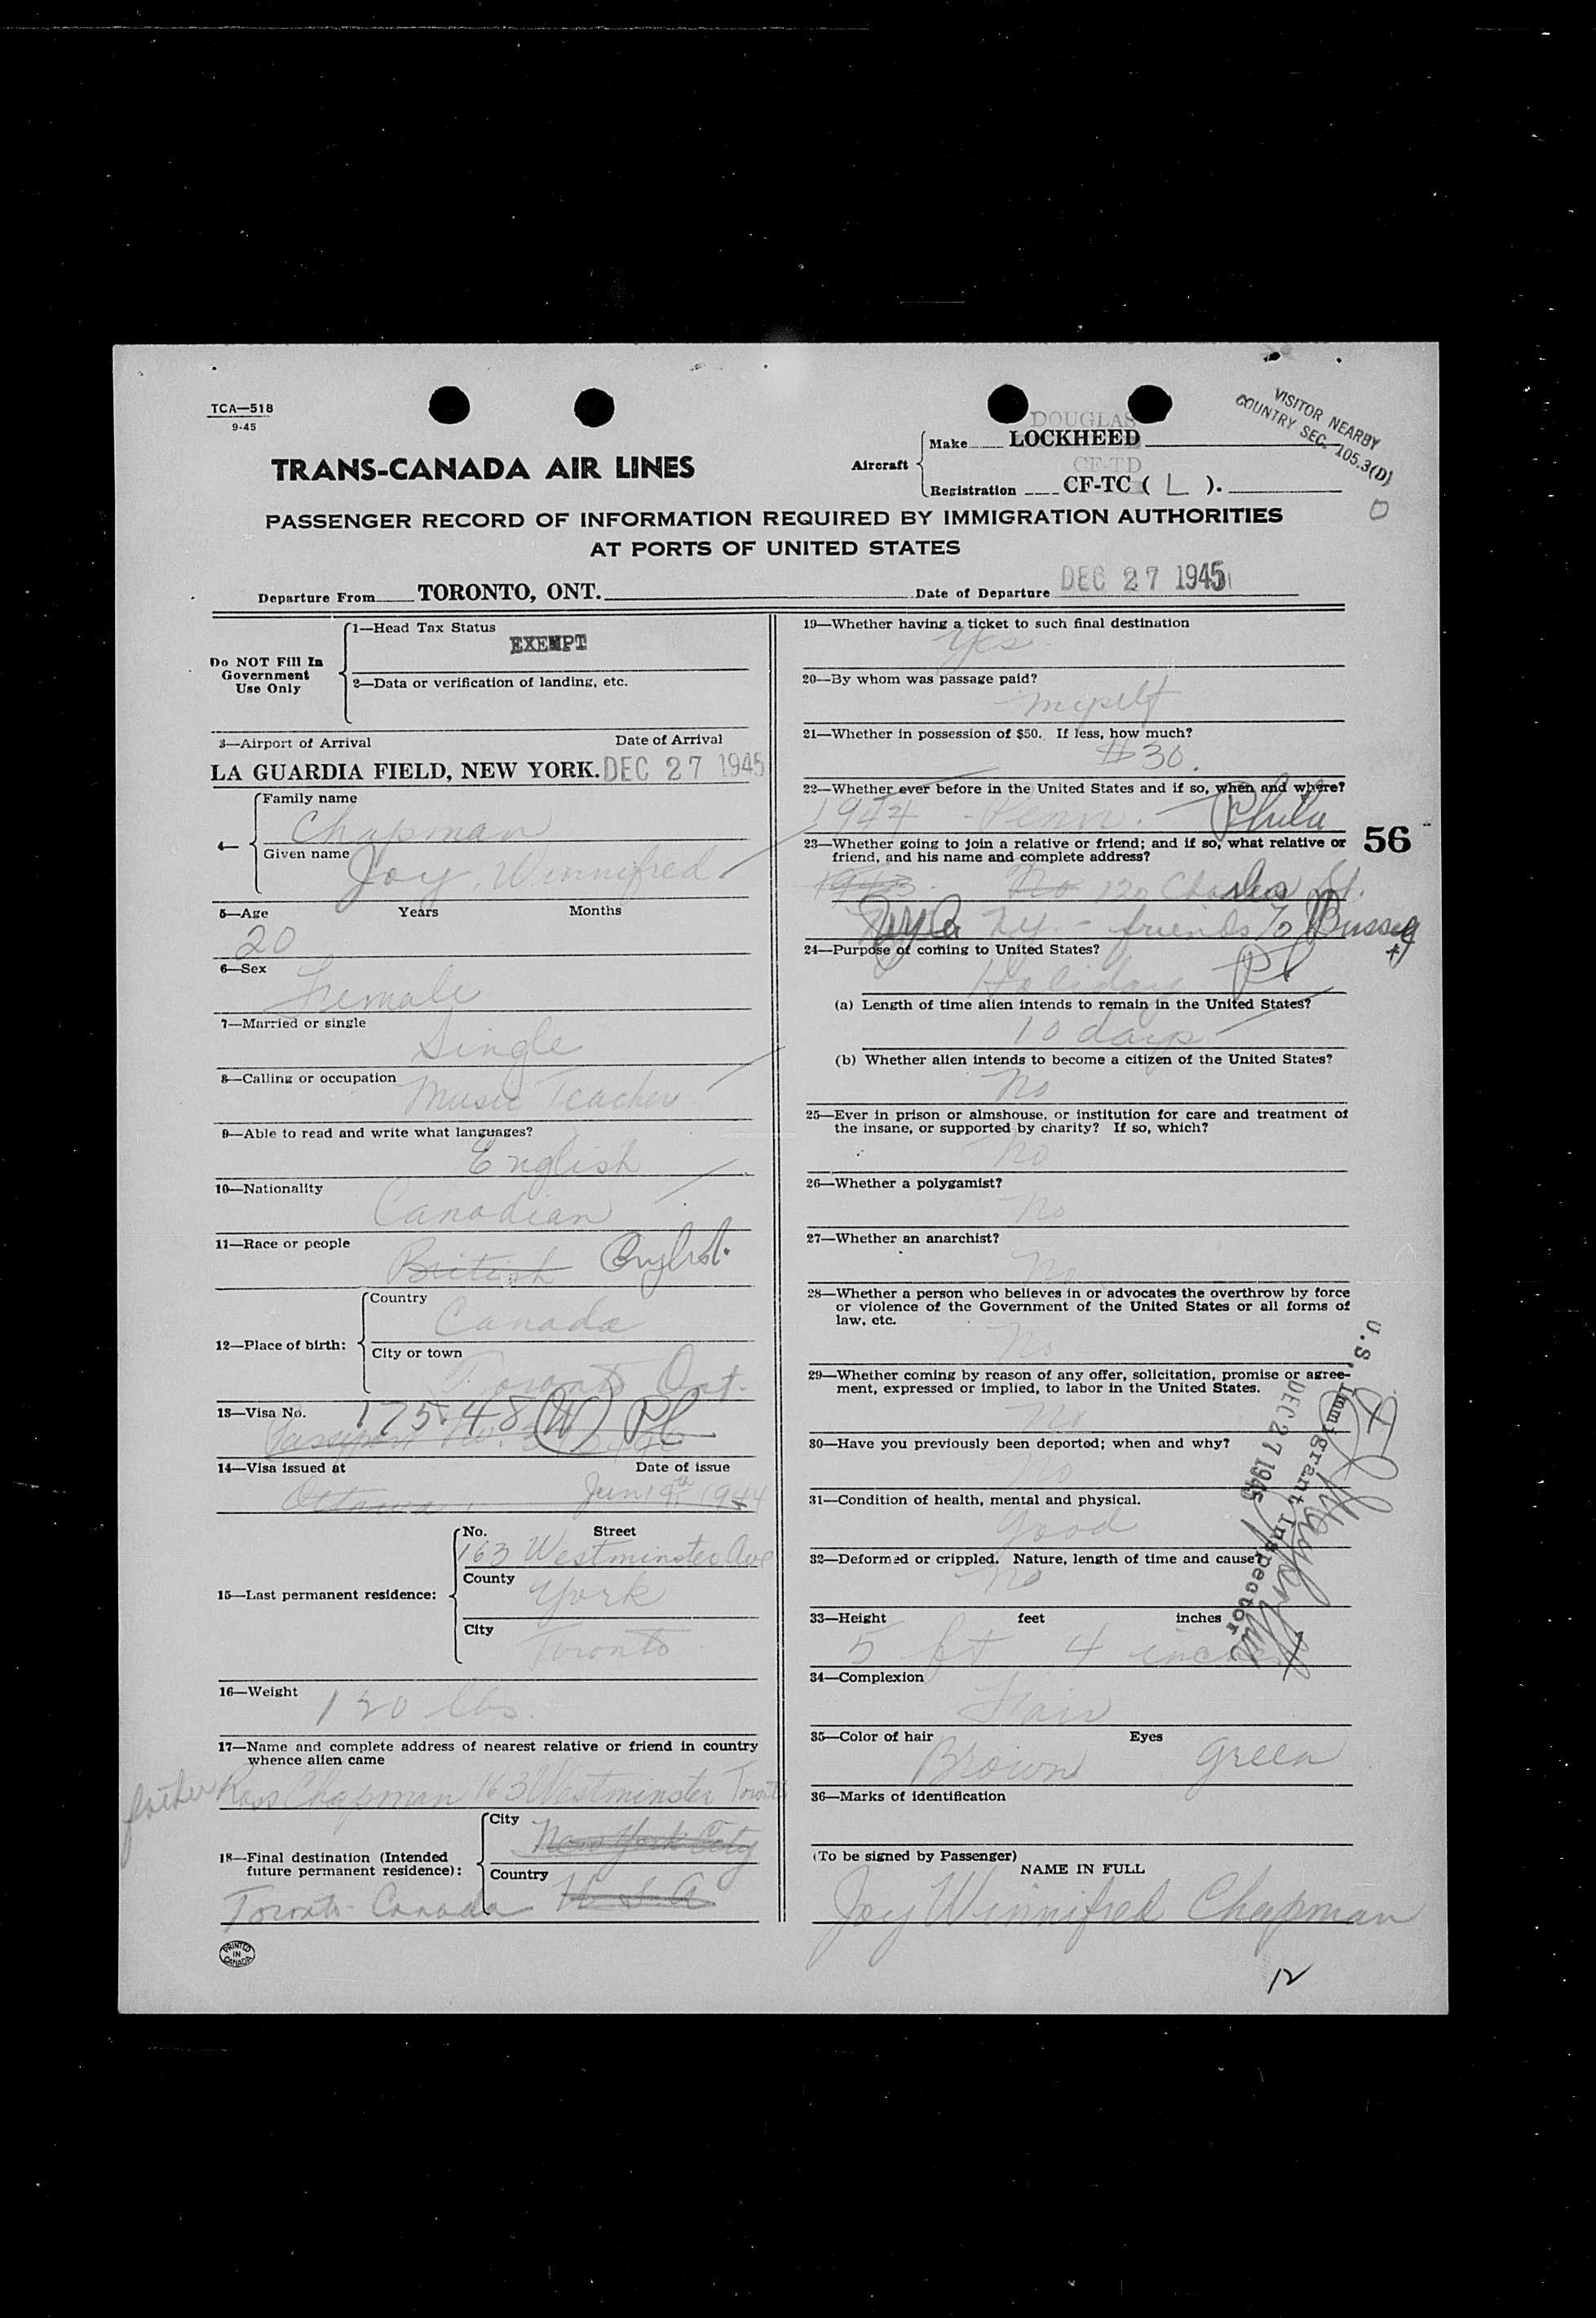 TCA—518
9-45
TRANS-CANADA AIR LINES
Aircraft
DOUGLAS
Make LOCKHEED
CF-TD
Registration CF-TC ( L ).
VISITOR NEARBY
COUNTRY SEC. 105.3(D)
PASSENGER RECORD OF INFORMATION REQUIRED BY IMMIGRATION AUTHORITIES
AT PORTS OF UNITED STATES
Departure From TORONTO, ONT. Date of Departure DEC 27 1945
Do NOT Fill In
Government
Use Only
1—Head Tax Status
EXEMPT
2—Data or verification of landing, etc.
3—Airport of Arrival Date of Arrival
LA GUARDIA FIELD, NEW YORK. DEC 27 1945
4—
Family name
Chapman
Given name
Joy Winnifred
5—Age Years Months
20
6—Sex
Female
7—Married or single
Single
8—Calling or occupation
Music Teacher
9—Able to read and write what languages?
English
10—Nationality
Canadian
11—Race or people
British English
12—Place of birth:
Country
Canada
City or town
Toronto Ont.
13—Visa No. 17548 (W) Pl
Passport No.
14—Visa issued at Date of issue
Ottawa Jun 19th 1944
15—Last permanent residence:
No. Street
163 Westminster Ave
County
York
City
Toronto
16—Weight
120 lbs.
17—Name and complete address of nearest relative or friend in country
whence alien came
father Ross Chapman 163 Westminster Toronto
18—Final destination (Intended
future permanent residence):
City
New York City
Country
U.S.A
Toronto - Canada
PRINTED
IN
CANADA
19—Whether having a ticket to such final destination
Yes
20—By whom was passage paid?
myself
21—Whether in possession of $50. If less, how much?
$30.
22—Whether ever before in the United States and if so, when and where?
1944 - Penn. - Phila
56
23—Whether going to join a relative or friend; and if so, what relative or
friend, and his name and complete address?
1943. No 120 Charles St.
NY - friends % Bussey
24—Purpose of coming to United States?
Holiday Pl
(a) Length of time alien intends to remain in the United States?
10 days
(b) Whether alien intends to become a citizen of the United States?
No
25—Ever in prison or almshouse, or institution for care and treatment of
the insane, or supported by charity? If so, which?
No
26—Whether a polygamist?
No
27—Whether an anarchist?
No
28—Whether a person who believes in or advocates the overthrow by force
or violence of the Government of the United States or all forms of
law, etc.
No
29—Whether coming by reason of any offer, solicitation, promise or agree-
ment, expressed or implied, to labor in the United States.
No
30—Have you previously been deported; when and why?
No
31—Condition of health, mental and physical.
Good
32—Deformed or crippled. Nature, length of time and cause?
No
33—Height feet inches
5 ft 4 inches
34—Complexion
Fair
35—Color of hair Eyes
Brown Green
36—Marks of identification
U.S. Immigrant Inspector
DEC 27 1945
(To be signed by Passenger)
NAME IN FULL
Joy Winnifred Chapman
12